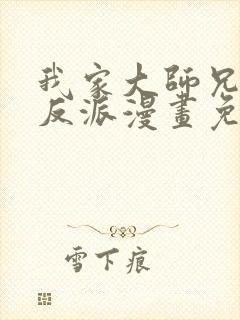 我家大師兄
反派漫畫免
雪下痕